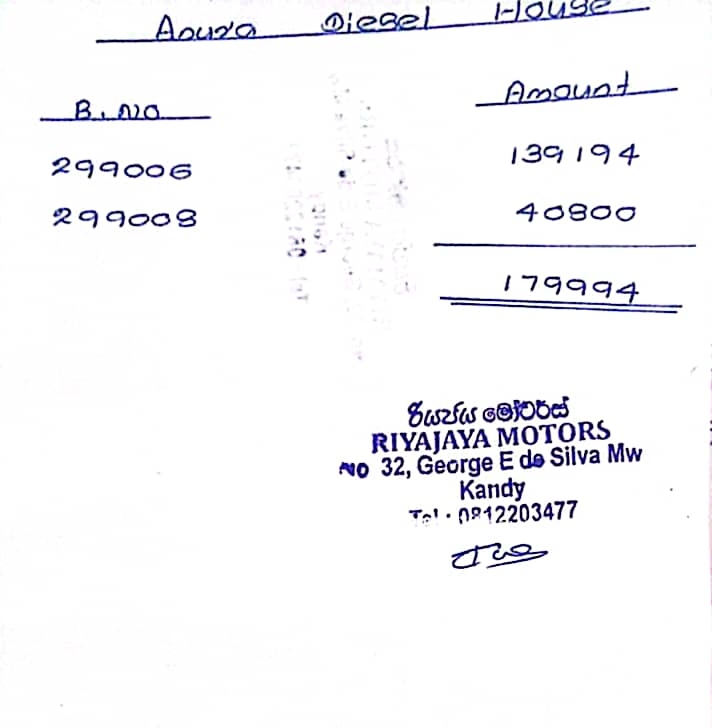 Anura Diesel House
B. NO Amount
299006 139194
299008 40800
179994
රියජය මෝටර්ස්
RIYAJAYA MOTORS
NO 32, George E de Silva Mw
Kandy
Tel : 0812203477